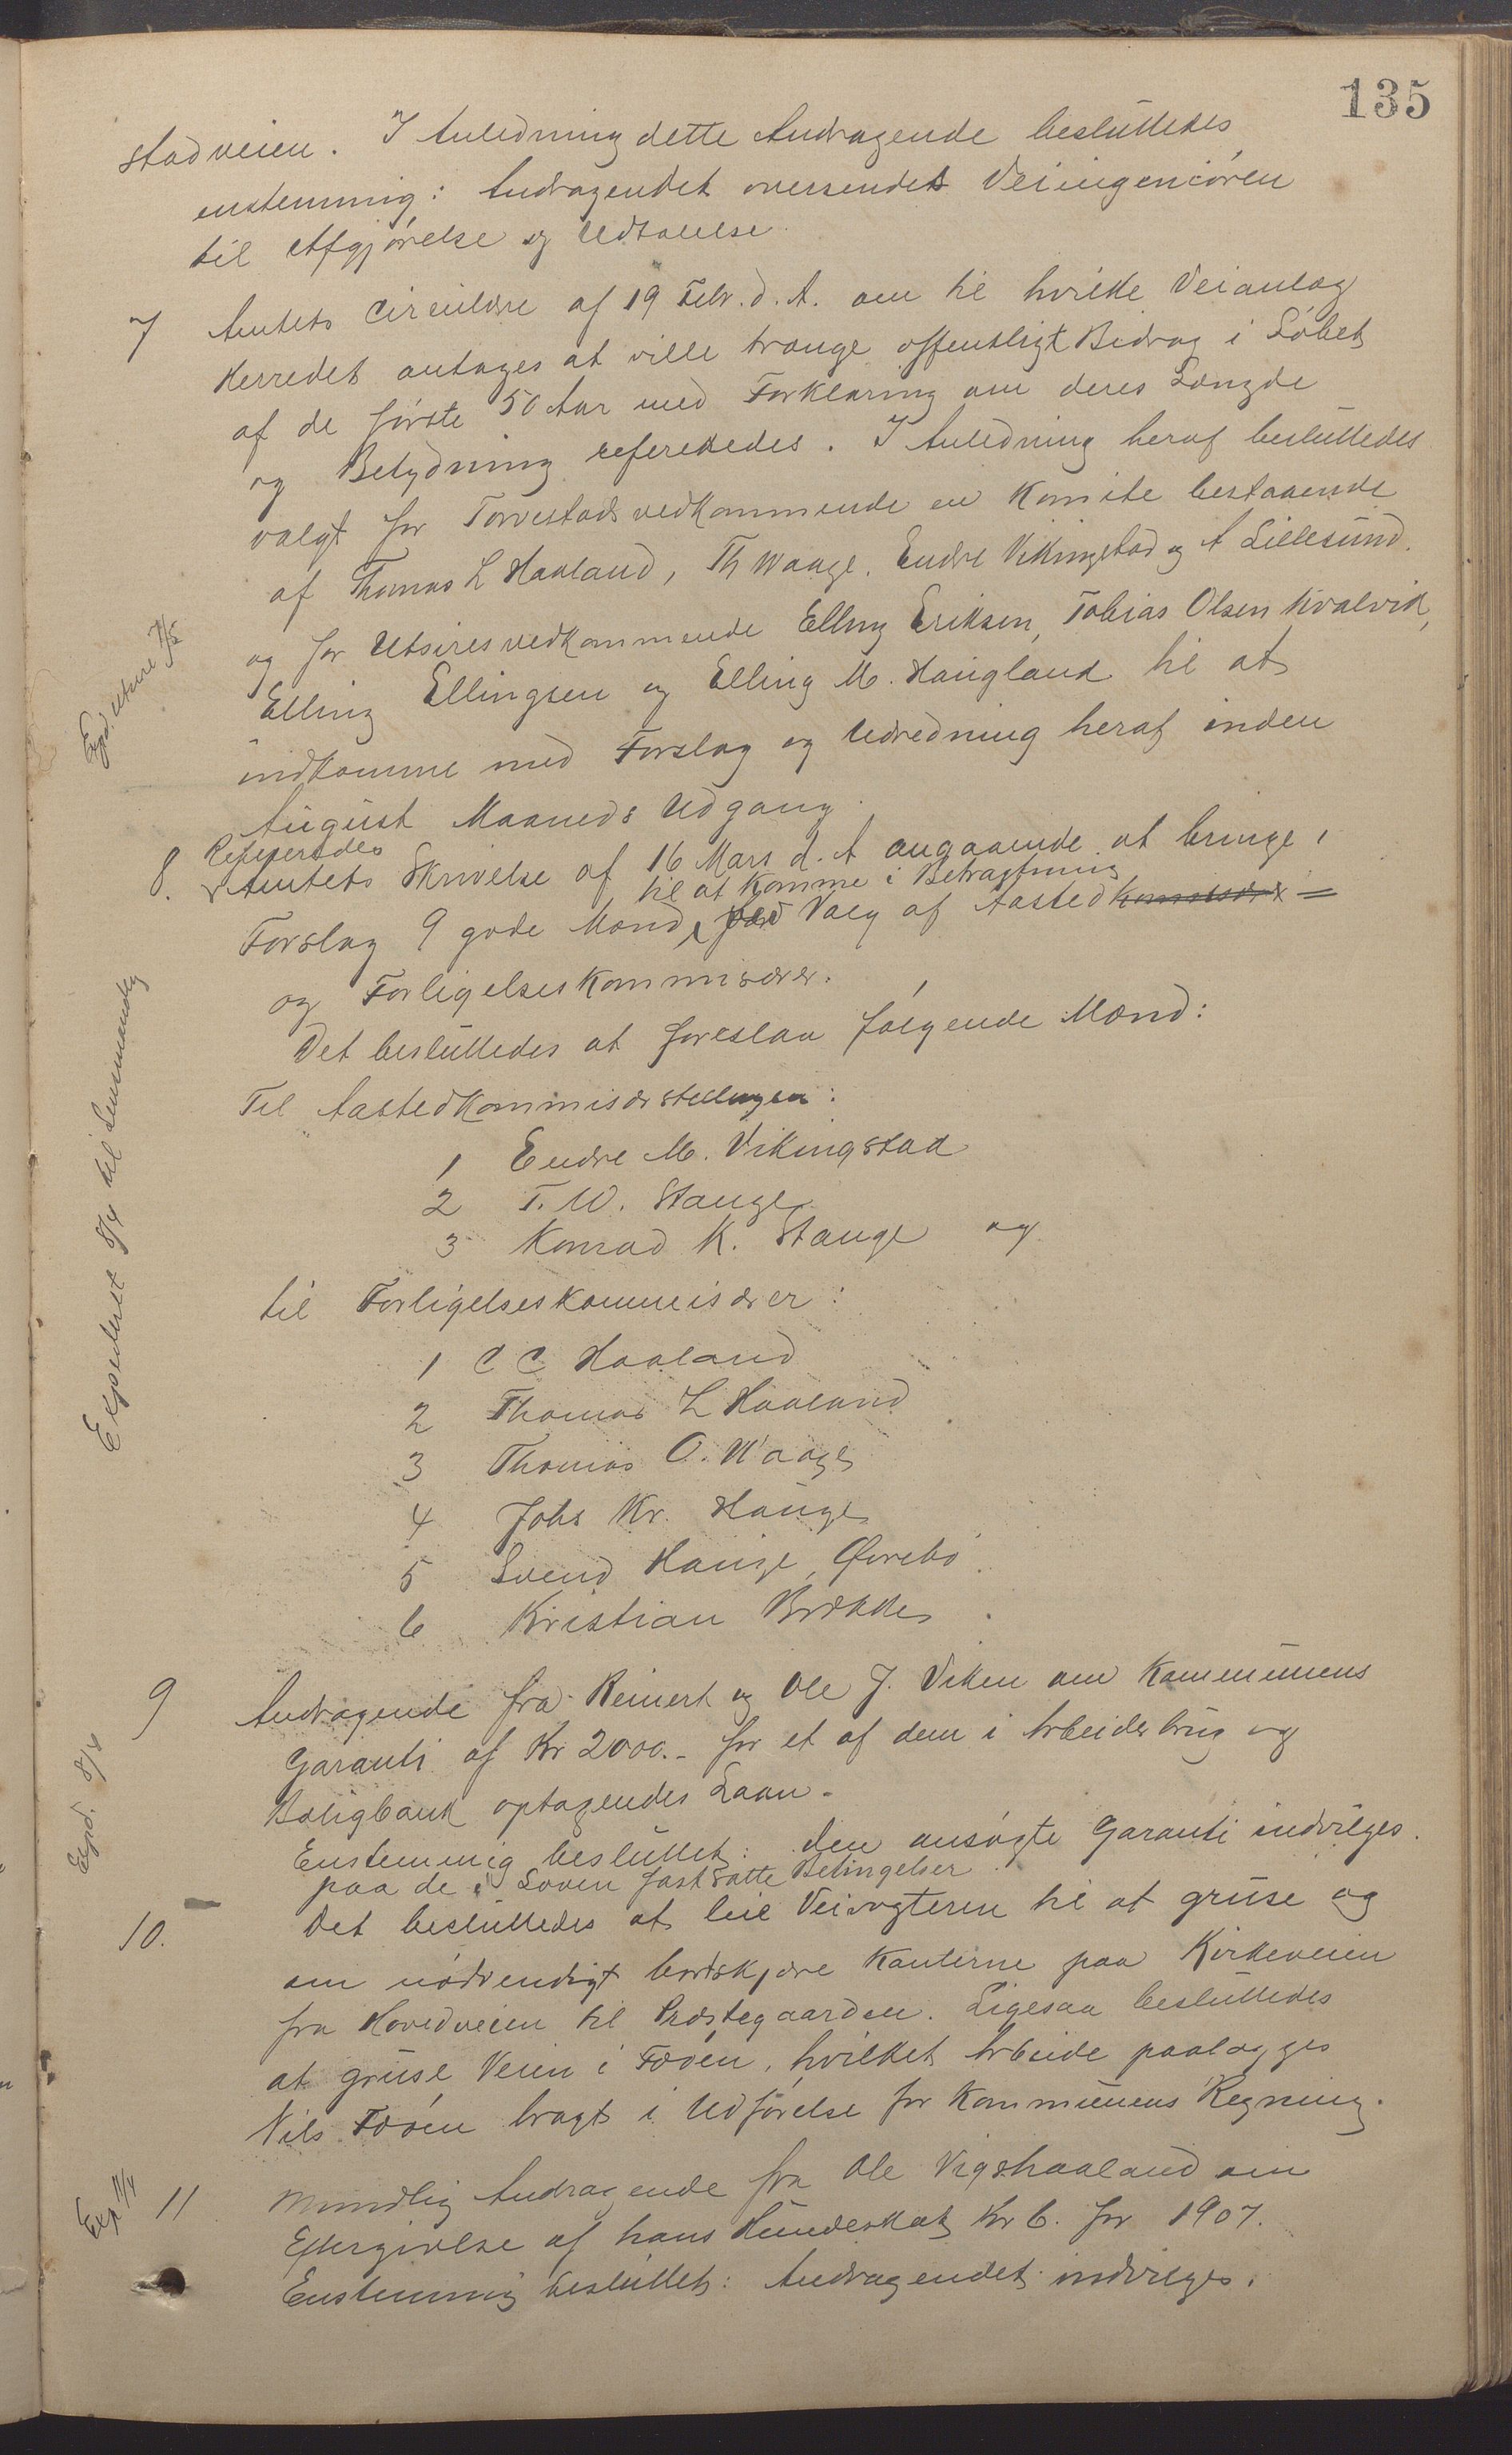 135
stadveien. I Anledning dette Andragende beslutledes
enstemmig: Andragendet oversendes Veiingeniøren
til Afgjørelse og Udtalelse.
7 Amtets Circulære af 19 Febr. d. A. om til hvilke Veianlæg
Herredet antages at ville trænge offentligt Bidrag i Løbet
af de første 50 Aar med Forklaring om deres Længde
og Betydning refereredes. I Anledning heraf beslutledes
valgt for Torvestads vedkommende en Komite bestaaende
af Thomas L Haaland, Th Waage, Endre Vikingstad og A Lillesund.
og for Utsires vedkommende Elling Eriksen, Tobias Olsen Kvalvik,
Elling Ellingsen og Elling M. Haugland til at
indkomme med Forslag og Udredning heraf inden
August Maaneds Udgang.
Refereredes
8. Amtets Skrivelse af 16 Mars d. A angaaende at bringe i
til at komme i Betragtning
Forslag 9 gode Mænd, ved Valg af Aasted
og Forligelseskommisærer.
Det beslutledes at foreslaa følgende Mænd:
Til Aastedkommisærstillingen:
1 Endre M. Vikingstad
2 T. W. Stange
3 Konrad K. Stange og
til Forligelseskommisærer:
1 C C Haaland
2 Thomas L Haaland
3 Thomas O. Waage
4 Johs Kr. Hauge
5 Svend Hauge, Øvrebø
6 Kristian Brekke
9 Andragende fra Reinert og Ole J. Viken om Kommunens
Garanti af Kr 2000.- for et af dem i Arbeiderbrug og
Boligbank optagendes Laan.
Enstemmig besluttet: den ansøgte Garanti indvilges.
paa de i Loven fastsatte Betingelser
10. Det beslutledes at leie Veivogteren til at gruse og
om nødvendigt bortskjære Kanterne paa Kirkeveien
fra Hovedveien til Præstegaarden. Ligesaa beslutledes
at gruse Veien i Føøen, hvilket Arbeide paalægges
Nils Føøen bragt i Udførelse for Kommunens Regning.
11 Mundlig Andragende fra Ole Vigshaaland om
Eftergivelse af hans Hundeskat Kr 6. for 1907.
Enstemmig besluttet: Andragendet indvilges.
Expederet 8/4 til Lensmanden
Expd. 8/4
Exp 11/4